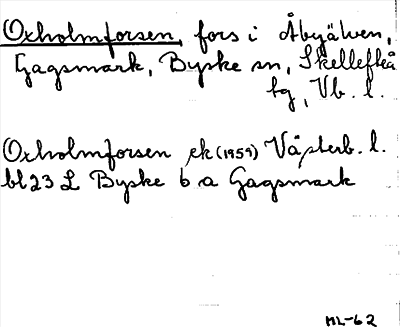 Oxholmforsen, fors i Åbyälven,
Gagsmark, Byske sn, Skellefteå
tg, Vb. l.
Oxholmforsen ek (1959) Västerb. l.
bl 23 L Byske 6 a Gagsmark
ML-62